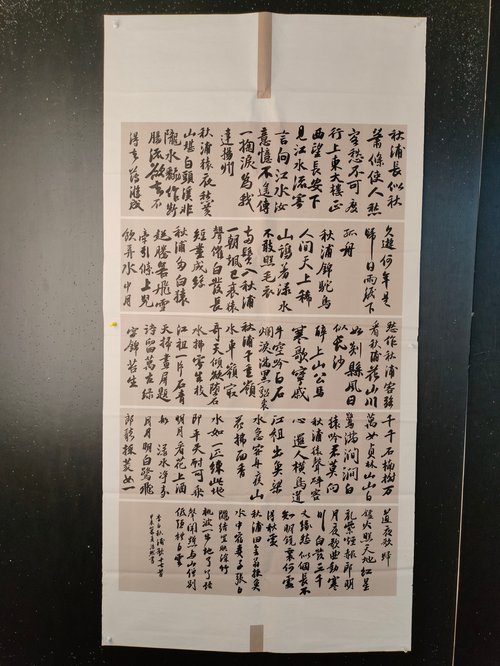 秋浦長似秋
萧條使人愁
客愁不可度
行上東大樓正
西望長安下
見江水流寄
言向江水汝
意憶不遥傳
一掬淚為我
達揚州
秋浦猿夜愁黄
山堪白頭溪非
隴水翻作断
腸流欲去不
得去薄游成
久遊何年是
歸日雨泪下
孤舟
秋浦錦鸵鳥
人間天上稀
山鷄羞淥水
不敢照毛衣
兩鬢入秋浦
一朝飒已衰猿
聲催白髮長
短盡成絲
秋浦多白猿
超騰若飛雪
牽引條上兒
飲弄水中月
愁作秋浦客強
看秋浦花山川
如剡縣風日
似長沙
醉上山公馬
寒歌甯戚
牛空吟白石
爛淚滿黑貂裘
秋浦千重嶺
水車嶺最
奇天傾欲墮石
水拂寄生枝
江祖一片石青
天掃畫屏題
詩留萬古綠
字錦苔生
千千石楠樹万
萬女貞林山山白
鷺滿澗澗白
猿吟君莫向
秋浦猿聲碎客
心邏人横鳥道
江祖出魚梁
水急客舟疾山
花拂面香
水如一匹練此地
即平天耐可乘
明月看花上酒
船 淥水净素
月月明白鷺飛
郎聽採菱女一
道夜歌歸
爐火照天地紅星
亂紫烟赧郎明
月夜歌曲動寒
川 白髮三千
丈緣愁似個長不
知明鏡裏何處
得秋霜
秋浦田舍翁採魚
水中宿妻子張白
鷴結罝映深竹
桃波一步地了了語
聲聞黯與山僧别
低頭禮白雲
李白秋浦歌十七首
甲辰